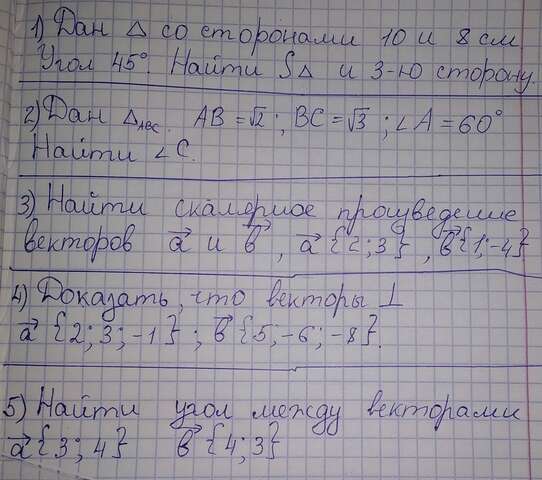 1) Дан △ со сторонами 10 и 8 см
Угол 45°. Найти S△ и 3-ю сторону.
2) Дан △ABC. AB = √2 ; BC = √3 ; ∠A = 60°
Найти ∠C.
3) Найти скалярное произведение
векторов a⃗ и b⃗ , a⃗ {2; 3} , b⃗ {1; -4}
4) Доказать, что векторы ⊥
a⃗ {2; 3; -1} ; b⃗ {5; -6; -8}.
5) Найти угол между векторами
a⃗ {3; 4} b⃗ {4; 3}